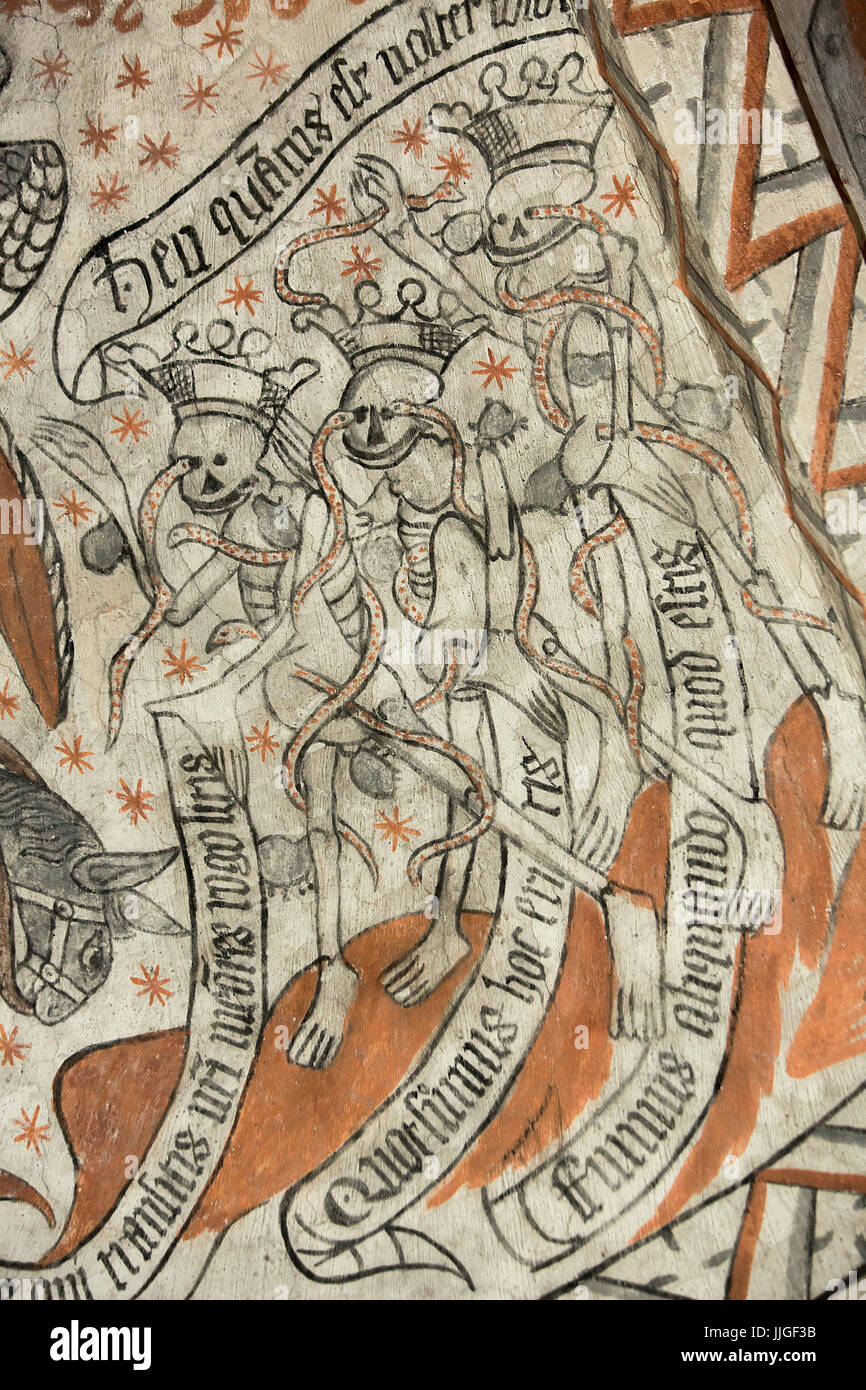 Heu quātus est noster
transitis nri mēores rogo sitis
Quot sumus hoc eri tis
Fuimus aliquando quod estis
alamy
Image ID: JJGF3B
www.alamy.com